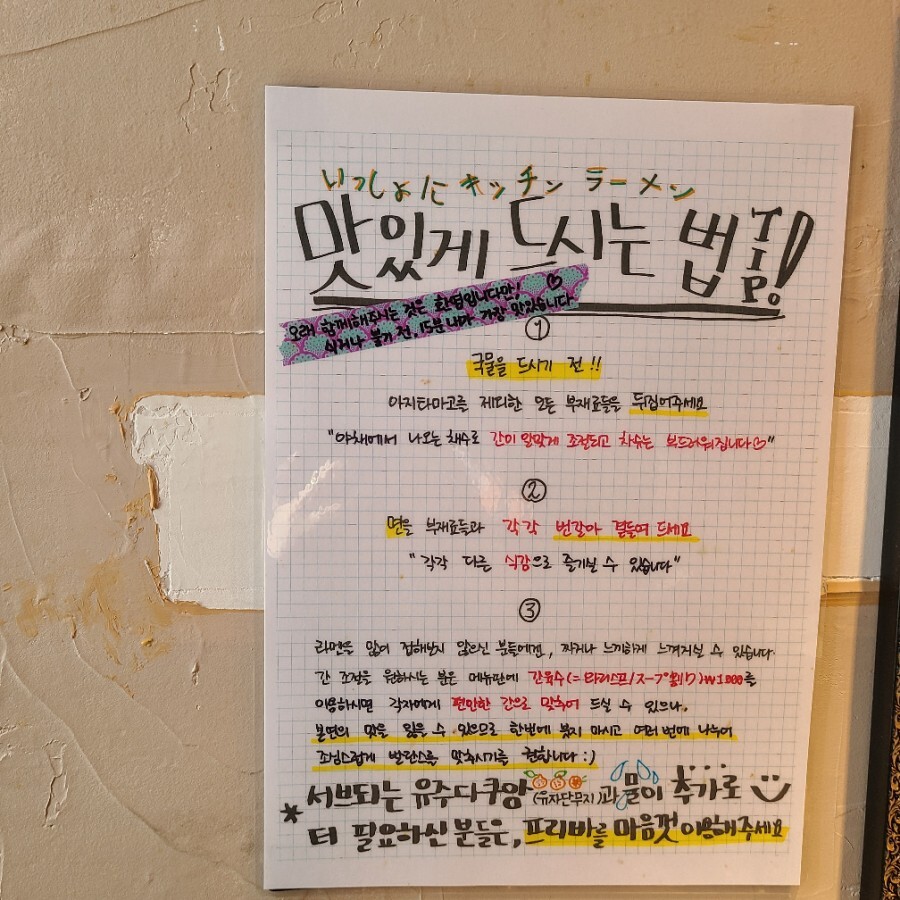 いっしょにキッチン ラーメン
맛있게 드시는 법 TIP!
오래 함께해주시는 것은 환영입니다만! ♡
식거나 불기 전, 15분 내가 가장 맛있습니다
①
국물을 드시기 전!!
아지타마고를 제외한 모든 부재료들을 뒤집어주세요
"야채에서 나오는 채수로 간이 알맞게 조절되고 차슈는 부드러워집니다♡"
②
면을 부재료들과 각각 번갈아 곁들여 드세요
"각각 다른 식감으로 즐기실 수 있습니다"
③
라멘을 많이 접해보지 않으신 분들에겐, 짜거나 느끼하게 느껴지실 수 있습니다.
간 조절을 원하시는 분은 메뉴판에 간육수(=와리스프/スープ割り)₩1000를
이용하시면 각자에게 편안한 간으로 맞추어 드실 수 있으나,
본연의 맛을 잃을 수 있으므로 한번에 붓지 마시고 여러번에 나누어
조심스럽게 밸런스를 맞추시기를 권합니다 :)
* 서브되는 유주다쿠앙(유자단무지)과 물이 추가로
더 필요하신 분들은, 프리바를 마음껏 이용해주세요